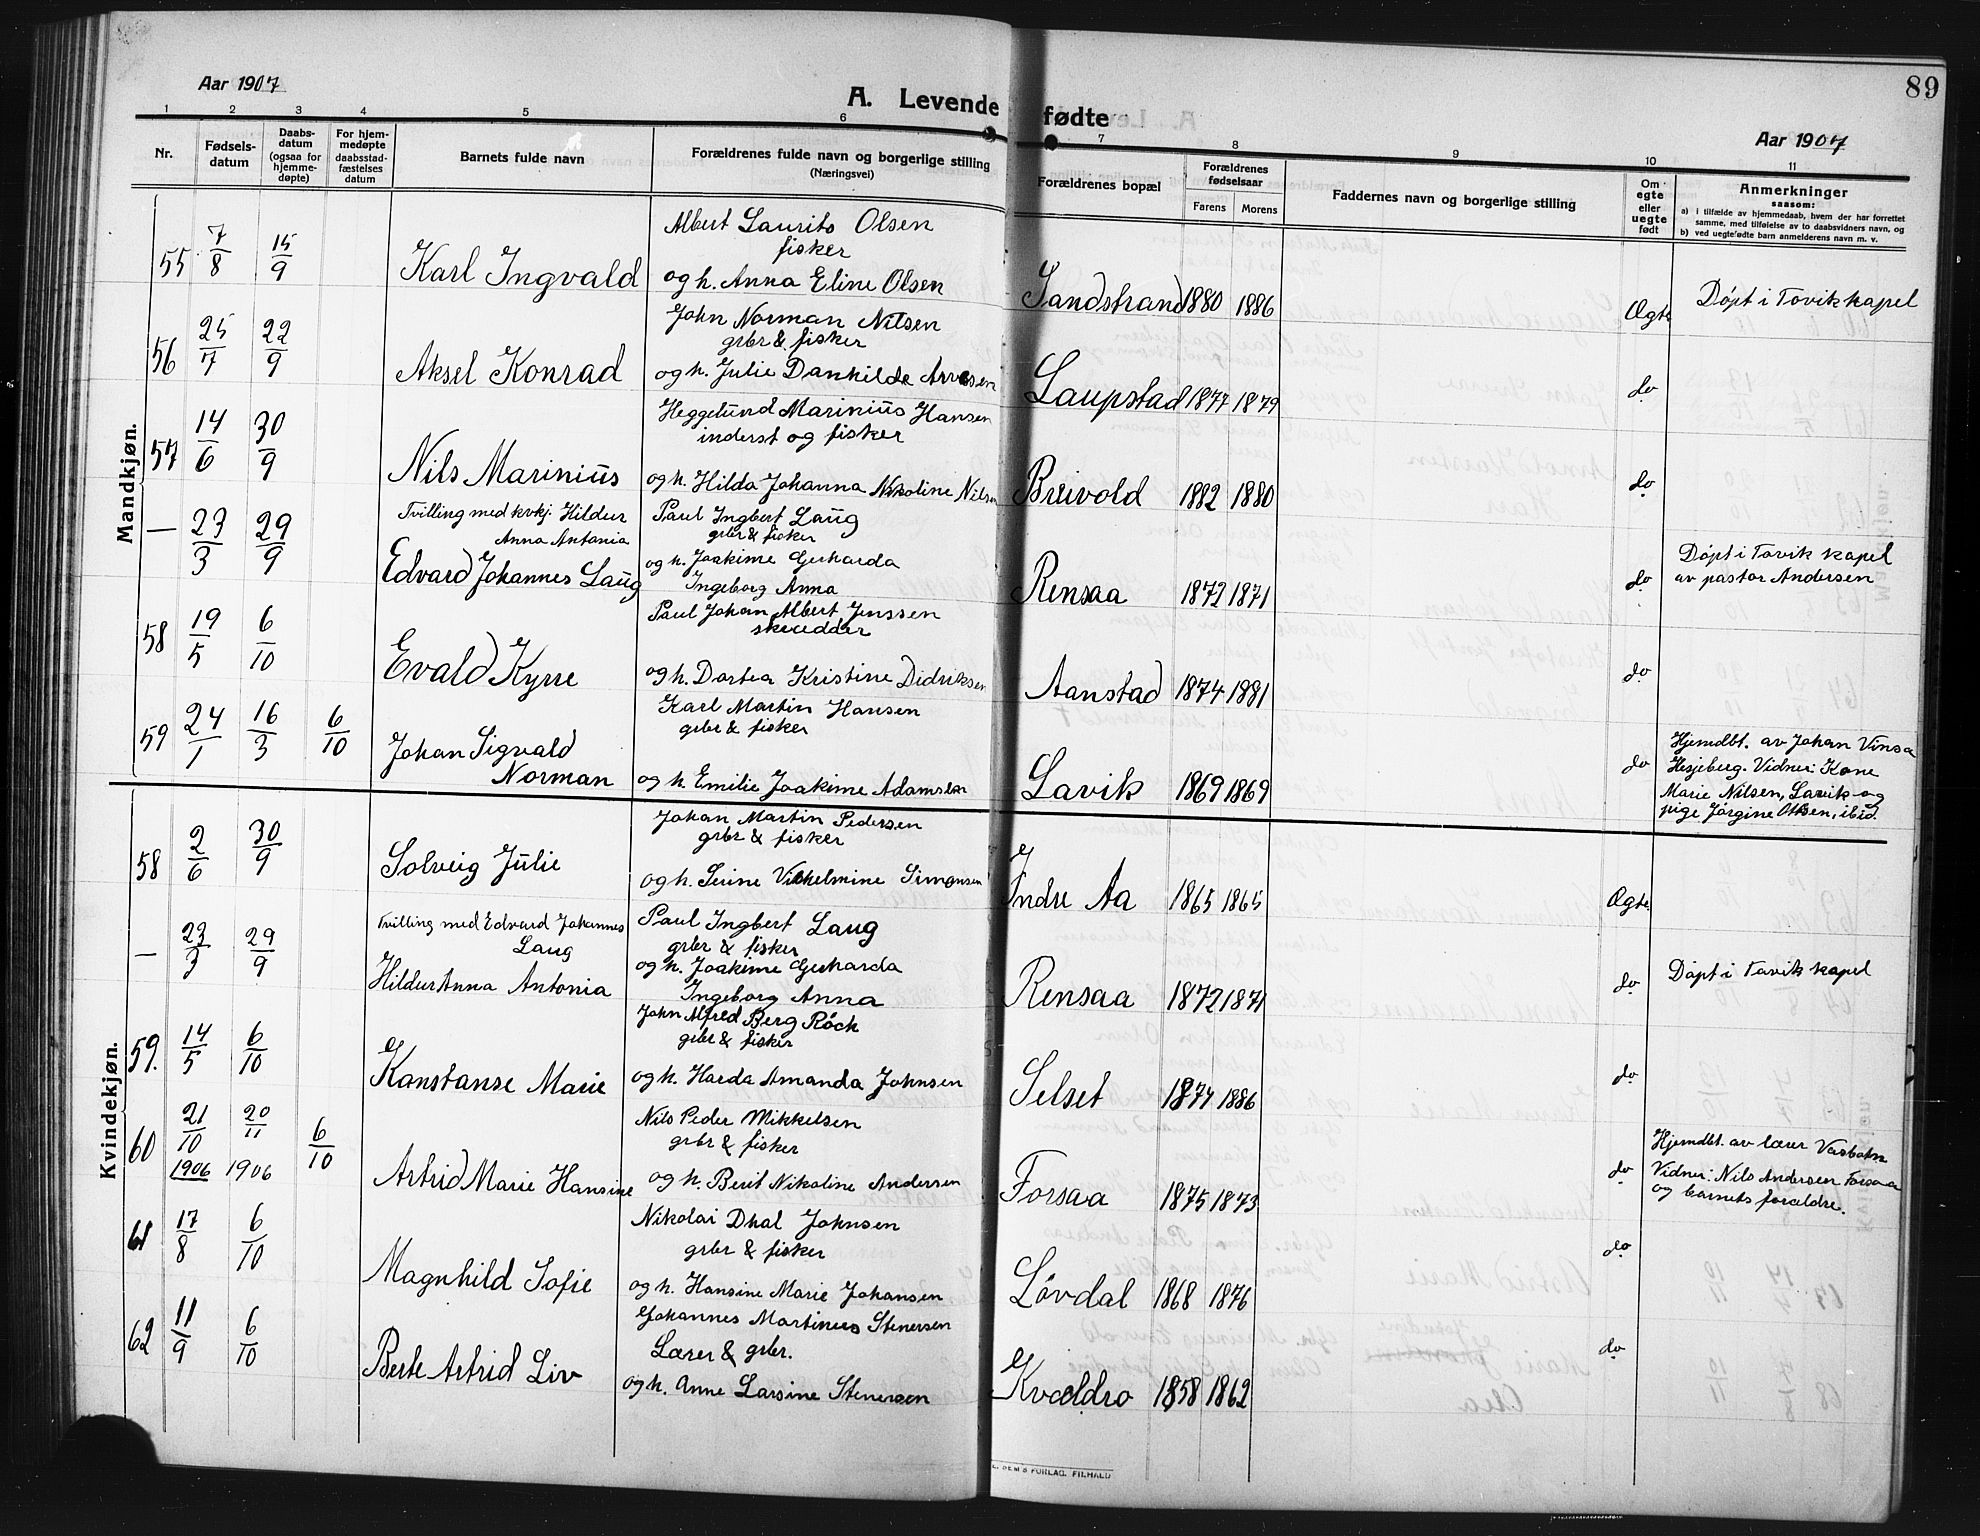 89
Aar 1907
A. Levende fødte
Aar 1907
1 2 3 4 5 6 7 8 9 10 11
Nr.
Fødsels-
datum
Daabs-
datum
(ogsaa for
hjemme-
døpte)
For hjem-
medøpte
daabsstad-
fæstelses
datum
Barnets fulde navn
Forældrenes fulde navn og borgerlige stilling
(Næringsvei)
Forældrenes bopæl
Forældrenes
fødselsaar
Farens Morens
Faddernes navn og borgerlige stilling
Om
egte
eller
uegte
født
Anmerkninger
saasom:
a) i tilfælde av hjemmedaab, hvem der har forrettet
samme, med tilføielse av to daabsvidners navn, og
b) ved uegtefødte barn anmelderens navn m. v.
Mandkjøn.
55 7/8 15/9 Karl Ingvald
Albert Laurits Olsen
fisker
og h. Anna Eline Olsen
Sandstrand 1880 1886 Ægte Døpt i Tovik kapel
56 25/7 22/9 Aksel Konrad
John Norman Nilsen
grbr & fisker
og h. Julie Danhilde Arnesen
Laupstad 1877 1879 do
57 14/6 30/9 Nils Marinius
Heggelund Marinius Hansen
inderst og fisker
og h. Hilda Johanna Nikoline Nilsen
Breivold 1882 1880 do
— 23/3 29/9
Tvilling med kvkj. Hildur
Anna Antonia
Edvard Johannes Laug
Paul Ingbert Laug
grbr & fisker
og h. Joakime Gerharda
Ingeborg Anna
Rensaa 1872 1871 do
Døpt i Tovik kapel
av pastor Andersen
58 19/5 6/10 Evald Kyrre
Paul Johan Albert Jenssen
skrædder
og h. Dortea Kristine Didriksen
Aanstad 1874 1881 do
59 24/1 16/3 6/10
Johan Sigvald
Norman
Karl Martin Hansen
grbr & fisker
og h. Emilie Joakime Adamsen
Lavik 1869 1869 do
Hjemdbt. av Johan Vinsa
Hesjeberg. Vidner: Kone
Marie Nilsen, Lavik og
pige Jørgine Olsen, ibid.
Kvindekjøn.
58 2/6 30/9 Solveig Julie
Johan Martin Pedersen
grbr & fisker
og h. Serine Vilhelmine Simonsen
Indre Aa 1865 1865 Ægte
— 23/3 29/9
Tvilling med Edvard Johannes
Laug
Hildur Anna Antonia
Paul Ingbert Laug
grbr & fisker
og h. Joakime Gerharda
Ingeborg Anna
Rensaa 1872 1871 do Døpt i Tovik kapel
59. 14/5 6/10 Konstanse Marie
John Alfred Berg Röck
grbr & fisker
og h. Harda Amanda Johnsen
Selset 1874 1886 do
60 21/10 1906 20/11 1906 6/10 Astrid Marie Hansine
Nils Peder Mikkelsen
grbr & fisker
og h. Berit Nikoline Andersen
Forsaa 1875 1873 do
Hjemdbt. av lærer
Vidner: Nils Andersen Forsaa
og barnets forældre.
61 17/8 6/10 Magnhild Sofie
Nikolai Dhal Johnsen
grbr & fisker
og h. Hansine Marie Johansen
Løvdal 1868 1876 do
62 11/9 6/10 Berte Astrid Liv
Johannes Martinus Stenersen
Lærer & grbr.
og h. Anne Larsine Stenersen
Kvældro 1858 1862 do
SEM'S FORLAG. FILHALD